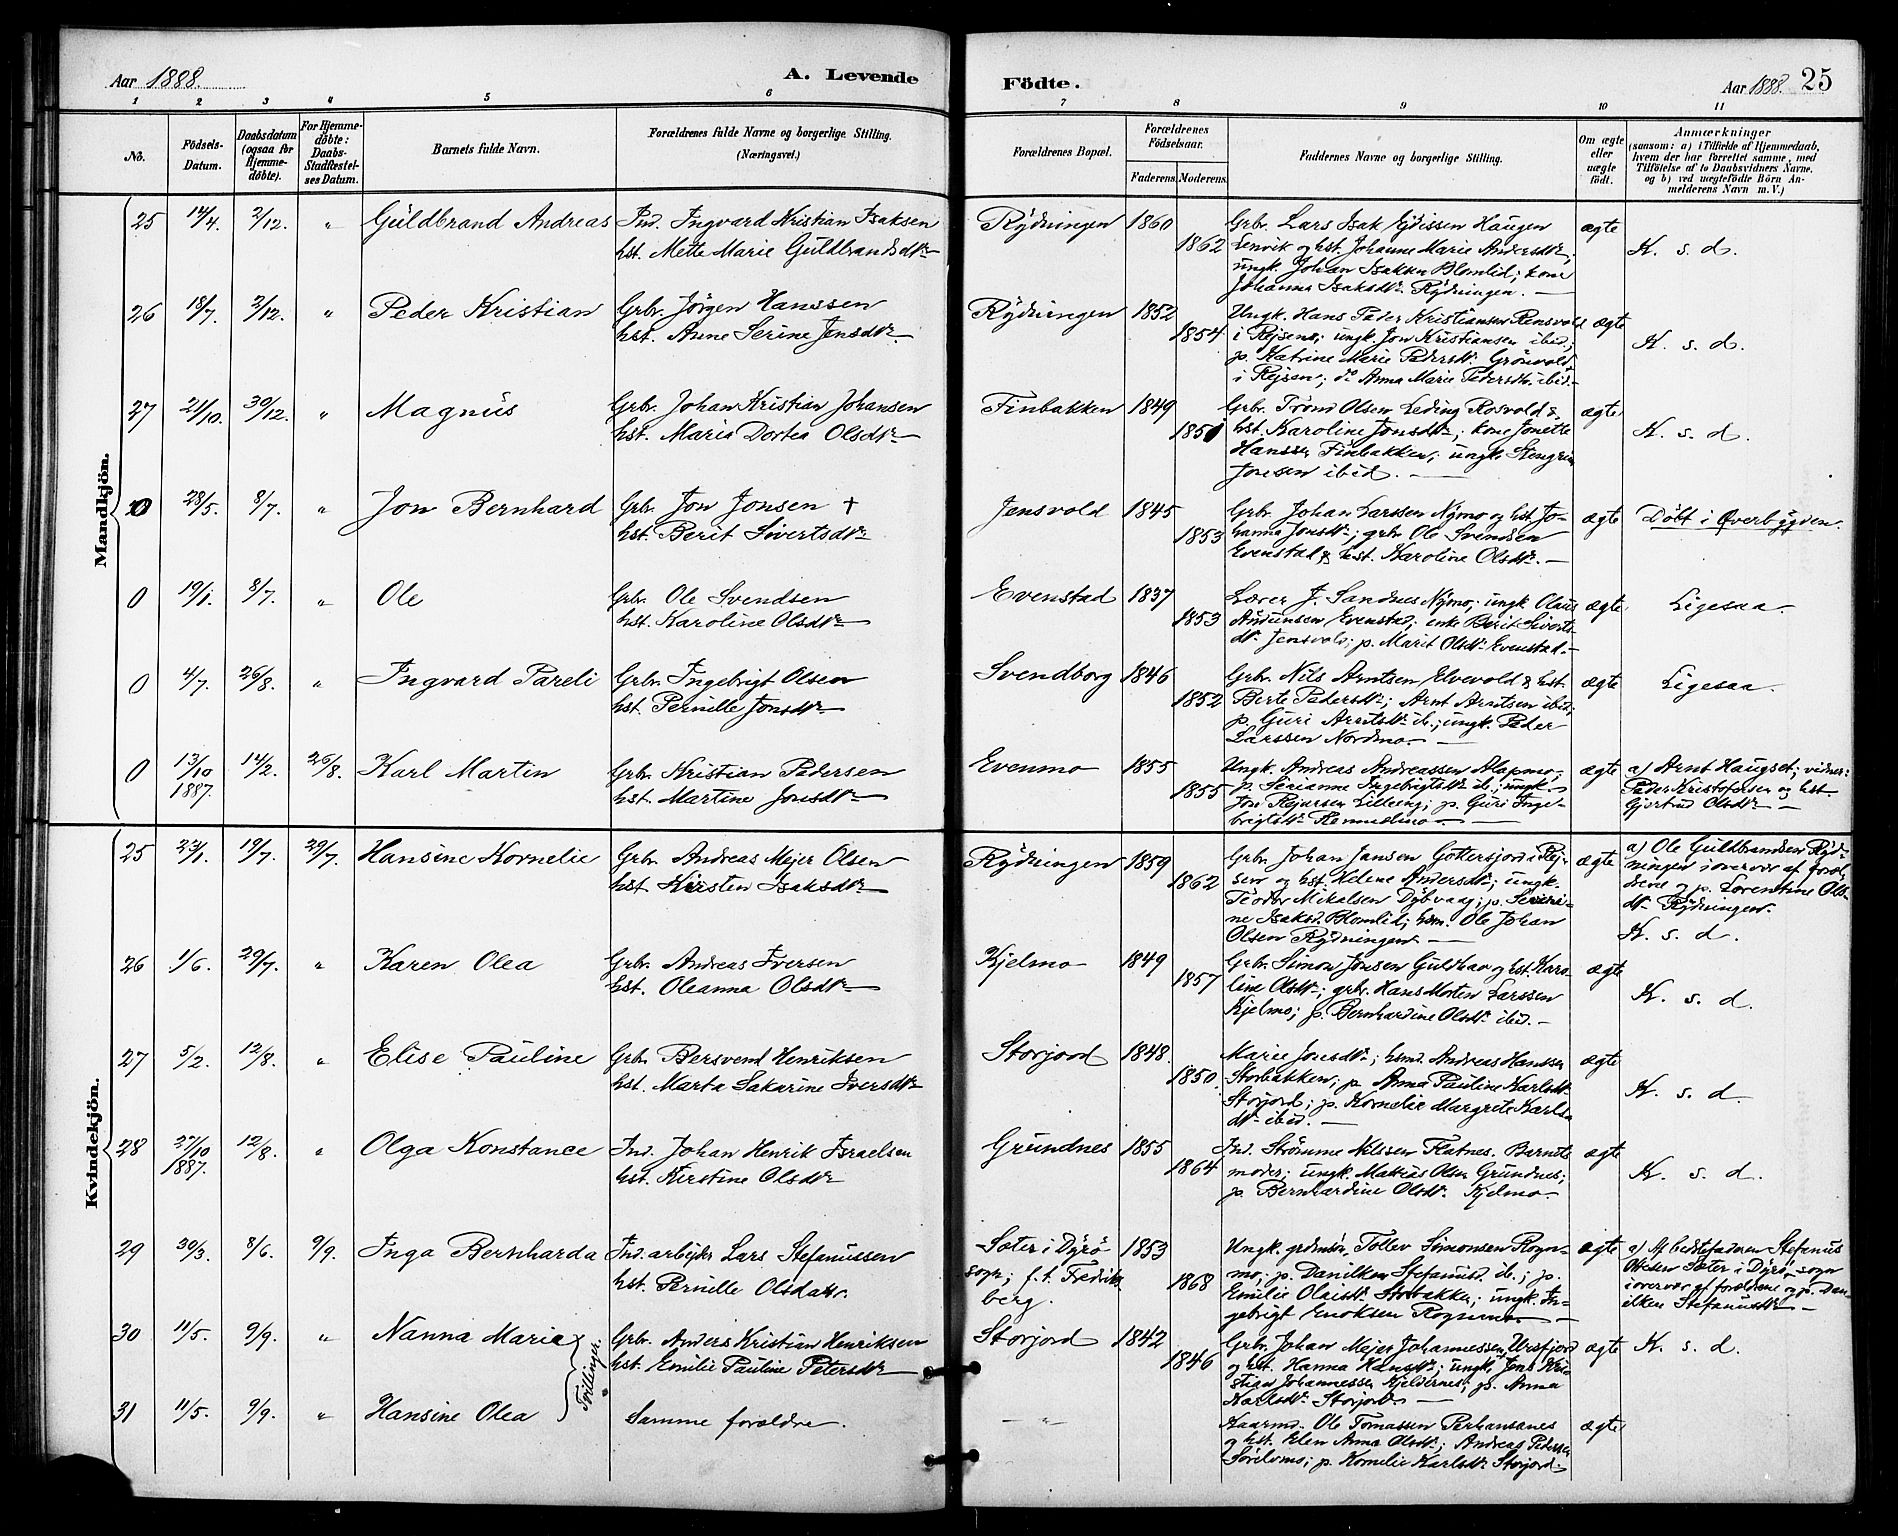 Aar 1888.
A. Levende
Födte.
Aar 1888. 25
1 2 3 4 5 6 7 8 9 10 11
No.
Födsels-
Datum.
Daabsdatum
(ogsaa for
Hjemme-
döbte).
For Hjemme-
döbte:
Daabs-
Stadfæstel-
ses Datum.
Barnets fulde Navn.
Forældrenes fulde Navne og borgerlige Stilling.
(Næringsvei.)
Forældrenes Bopæl.
Forældrenes
Födselsaar.
Faderens. Moderens.
Faddernes Navne og borgerlige Stilling.
Om ægte
eller
uægte
födt.
Anmærkninger
(saasom: a) i Tilfælde af Hjemmedaab,
hvem der har forrettet samme, med
Tilföielse af to Daabsvidners Navne.
og b) ved uægtefödte Börn An-
melderens Navn m. V.)
Mandkjön.
25 14/4. 2/12. " Guldbrand Andreas Ind. Ingvard Kristian Isaksen
hst. Mette Marie Guldbrandsdtr.
Rydningen 1860
1862
Grbr. Lars Isak Haugen
Lenvik og hst. Johanne Marie Andersdtr.;
ungk. Johan Isaksen Blomlid; kone
Johanna Isaksdtr. Rydningen.
ægte
K. s. d.
26 18/7. 2/12. " Peder Kristian Grbr. Jörgen Hanssen
hst. Anne Serine Jensdtr.
Rydningen 1852
1854
Ungk. Hans Peder Kristiansen Rensvold
i Rejsen; ungk. Jon Kristiansen ibid;
p. Katrine Marie Pedersdtr. Grönvold
i Rejsen; do Anna Marie Pedersdtr. ibid.
ægte
K. s. d.
27 21/10. 30/12. " Magnus Grbr. Johan Kristian Johansen
hst. Maria Dortea Olsdtr.
Finbakken 1849
1851
Grbr. Trond Olsen Leding Rosvold &
hst. Karoline Jonsdtr.; kone Jonette
Hanssen Finbakken; ungk.
Jonsen ibid.
ægte
K. s. d.
0 28/5. 8/7. " Jon Bernhard Grbr. Jon Jonsen +
hst. Berit Sivertsdtr.
Jensvold 1845
1853
Grbr. Johan Larssen Nymo og hst. Jo-
hanna Jonsdtr.; grbr. Ole Svendsen
Evenstad & hst. Karoline Olsdtr.
ægte
Döbt i Øverbygden.
0 19/1. 8/7. " Ole Grbr. Ole Svendsen
hst. Karoline Olsdtr.
Evenstad 1837
1853
Lærer J. Sandnes Nymo; ungk. Olaus
Amundsen Evenstad; enke Berit Siverts-
dtr. Jensvold; p. Marit Olsdtr. Evenstad.
ægte
Ligesaa.
0 4/7. 26/8. " Ingvard Pareli Grbr. Ingebrigt Olsen
hst. Pernille Jonsdtr.
Svendborg 1846
1852
Grbr. Nils Arntsen Elvevold & hst.
Berte Pedersdtr.; Arnt Arntsen ibid;
p. Guri Arntsdtr. ib.; ungk. Peder
Larssen Nordmo.
ægte
Ligesaa.
0 13/10 1887. 14/2. 26/8. Karl Martin Grbr. Kristian Pedersen
hst. Martine Jonsdtr.
Evenmo 1855
1855
Ungk. Andreas Andreassen Alapmo;
p. Serianne Ingebrigtsdtr. ib.; ungk.
Jon Rejersen Lilleeng; p. Guri Inge-
brigtsdtr.
ægte
a) Arnt Haugset; vidner:
Peder Kristofersen og hst.
Gjertrud Olsdtr.
Kvindekjön.
25 23/1. 19/7. 29/7. Hansine Kornelie Grbr. Andreas Mejer Olsen
hst. Kirsten Isaksdtr.
Rydningen 1859
1862
Grbr. Johan Jansen Gottersjord i Rej-
sen og hst. Helene Andersdtr.; ungk.
Teodor Mikalsen Dybvaag; p. Serian-
ne Isaksd. Blomlid; hsm. Ole Johan
Olsen Rydningen.
ægte
a) Ole Guldbrandsen Ryd-
ningen i overvær af foræl-
drene og p. Lorentine Ols-
dtr. Rydningen.
K. s. d.
26 1/6. 29/7. " Karen Olea Grbr. Andreas Iversen
hst. Oleanna Olsdtr.
Kjelmo 1849
1857
Grbr. Simon Jonsen Guldhav og hst. Karo-
line Olsdtr.; grbr. Hans Morten Larssen
Kjelmo; p. Bernhardine Olsdtr. ibid.
ægte
K. s. d.
27 5/2. 12/8. " Elise Pauline Grbr. Bersvend Henriksen
hst. Marta Sakarine Iversdtr.
Storjord 1848.
1850.
Marie Jonsdtr.; hsmd. Andreas Hanssen
Storbakken; p. Anna Pauline Karlsdtr.
Storjord; p. Kornelie Margrete Karls-
dtr. ibid.
ægte
K. s. d.
28 27/10 1887. 12/8. " Olga Konstance Ind. Johan Henrik Israelsen
hst. Kirstine Olsdtr.
Grundnes 1855
1864
Ind. Strömme Nilssen Flatnes. Barnets
moder; ungk. Mattias Olsen Grundnes;
p. Bernhardine Olsdtr. Kjelmo.
ægte
K. s. d.
29 30/3. 8/6. 9/9. Inga Bernharda Ind. arbejder Lars Stefanussen
hst. Pernille Olsdatr.
Sæter i Dyrö
sogn; f. t. Fredriks
berg.
1853
1868
Ungk. grdmsön Tollev Simonsen Rogn-
mo; p. Danilken Stefanusd. ib.; p.
Emilie Olaisdtr. Storbakken; ungk. In-
gebrigt Enoksen Rognmo.
ægte
a) Af bedstefaderen Stefanus
Ottesen Sæter i Dyrö sogn
i overvær af forældrene og p. Dan-
ilken Stefanusdtr.
30 11/5. 9/9. " Nanna Marie Grbr. Anders Kristian Henriksen
hst. Emilie Pauline Petersdtr.
Tvillinger.
Storjord 1842
1846
Grbr. Johan Mejer Johannessen Ursfjord
og hst. Hanna Hansdtr.; ungk. Jens Kri-
stian Johannessen Kjeldernes; p. Anna
Karlsdtr. Storjord.
ægte
K. s. d.
31 11/5. 9/9. " Hansine Olea Samme forældre.
"
Gaarmd. Ole Tomassen Perhansanes
og hst. Elen Anna Olsdtr.; Andreas Pedersen
; p. Kornelie Karlsdtr. Storjord.
ægte